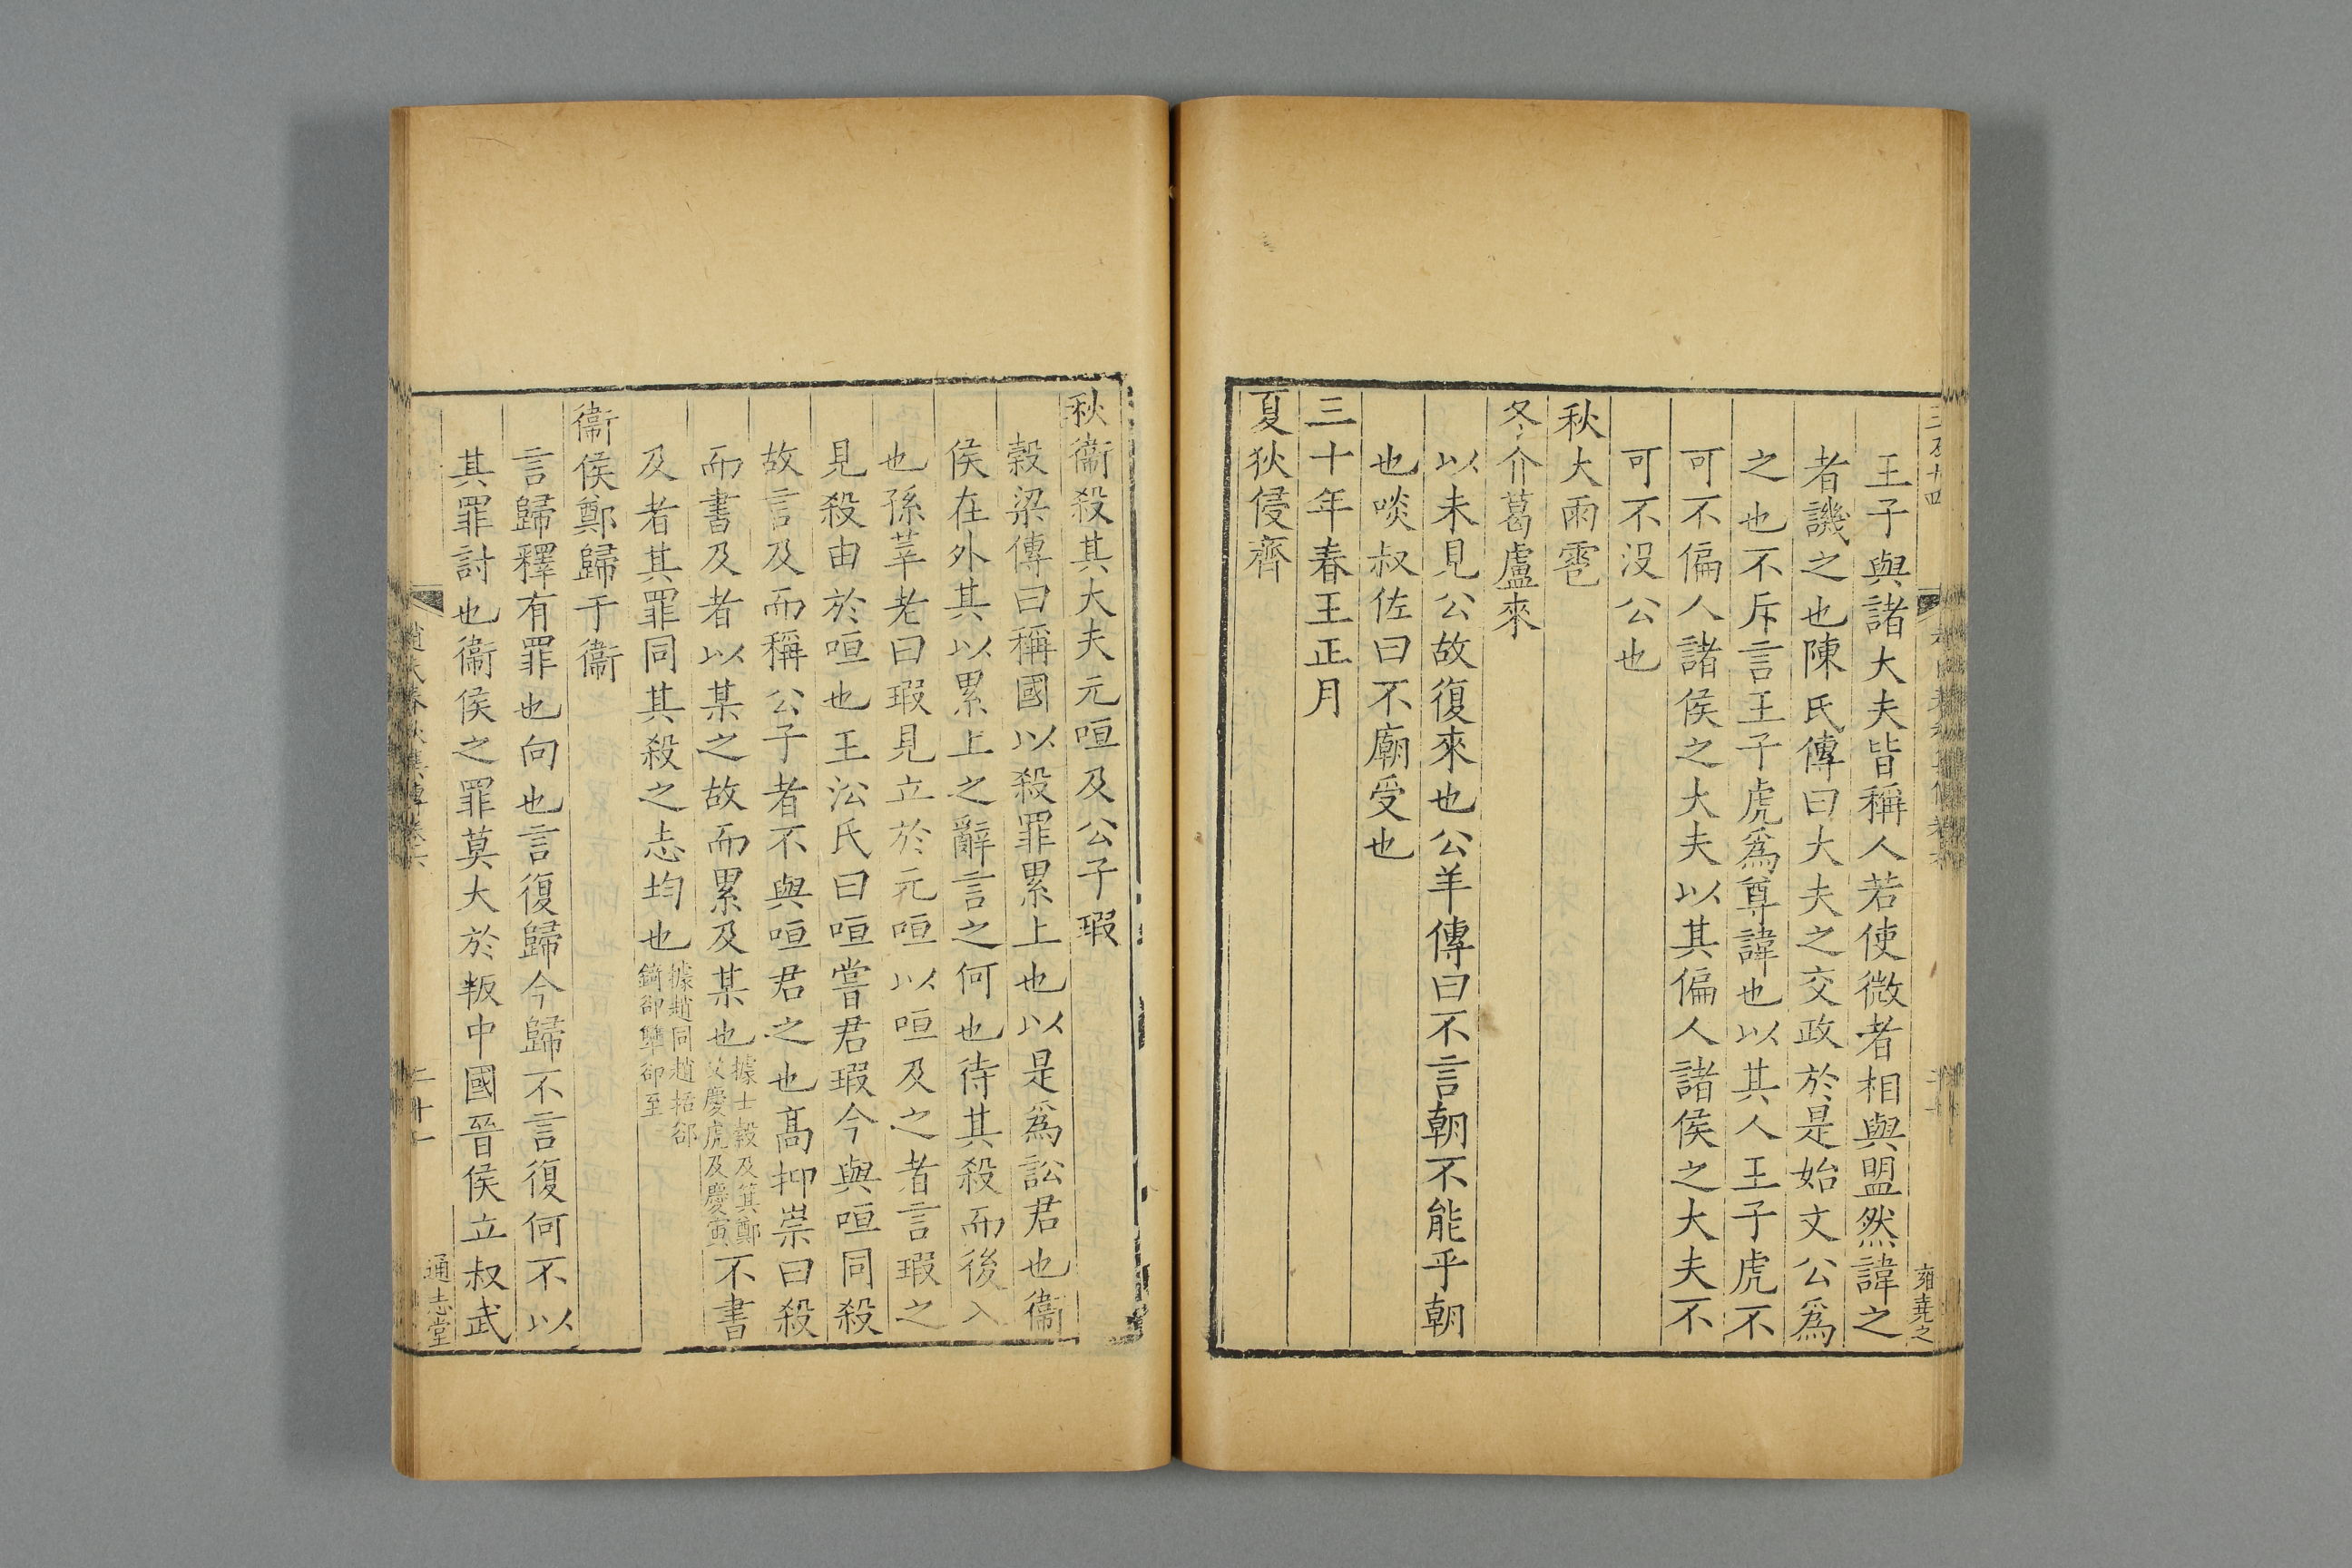 王子與諸大夫皆稱人若使微者相與盟然諱之
者譏之也陳氏傳曰大夫之交政於是始文公爲
之也不斥言王子虎爲尊諱也以其人王子虎不
可不偏人諸侯之大夫以其偏人諸侯之大夫不
可不没公也
秋大雨雹
冬介葛盧來
以未見公故復來也公羊傳曰不言朝不能乎朝
也啖叔佐曰不廟受也
三十年春王正月
夏狄侵齊
秋衞殺其大夫元咺及公子瑕
榖梁傳曰稱國以殺罪累上也以是爲訟君也衞
侯在外其以累上之辭言之何也待其殺而後入
也孫莘老曰瑕見立於元咺以咺及之者言瑕之
見殺由於咺也王㳂氏曰咺嘗君瑕今與咺同殺
故言及而稱公子者不與咺君之也髙抑崇曰殺
而書及者以某之故而累及某也據士榖及箕鄭父慶虎及慶寅不書
及者其罪同其殺之志均也據趙同趙括郤錡郤犨郤至
衞侯鄭歸于衞
言歸釋有罪也向也言復歸今歸不言復何不以
其罪討也衞侯之罪莫大於叛中國晉侯立叔武
通志堂